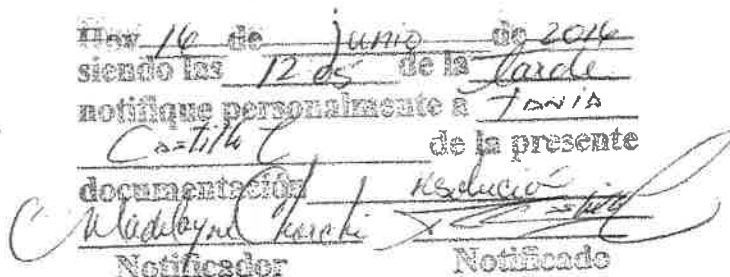 Hoy 16 de junio de 2016
siendo las 12 05 de la tarde
notifique personalmente a Tania
Castillo C de la presente
documentación resolución
Notificador Notificado